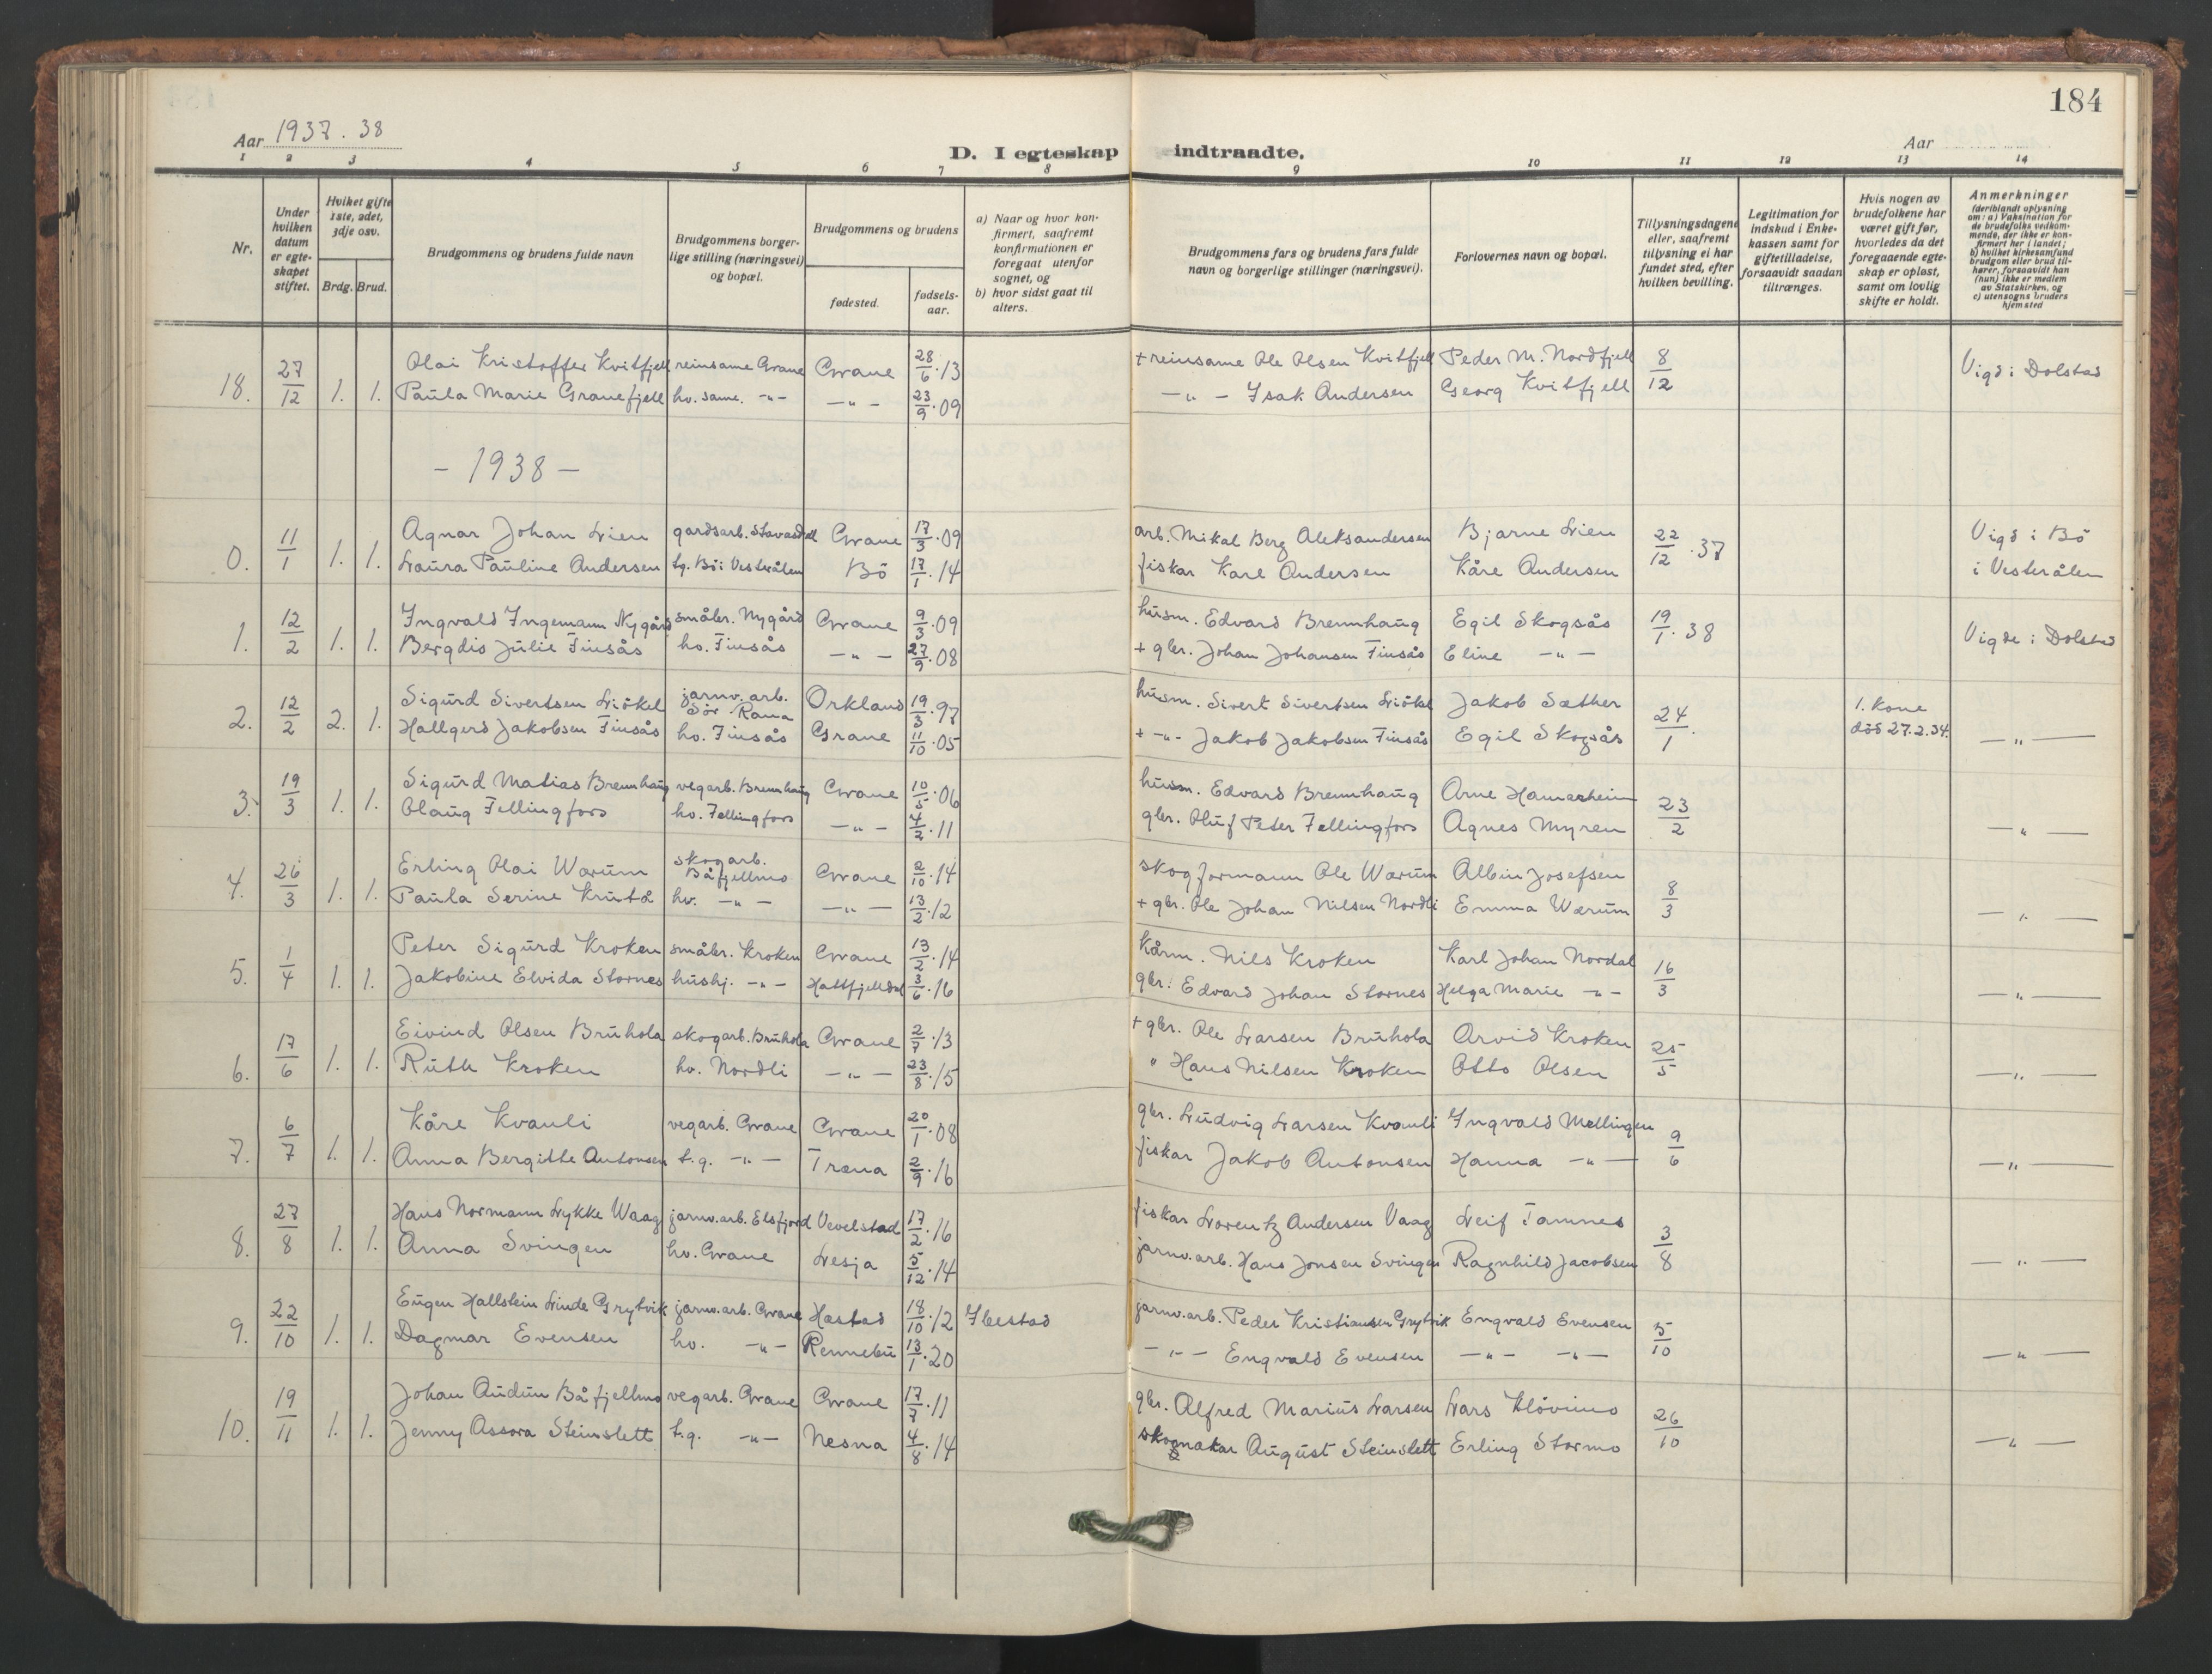 184
Aar 1937. 38
Aar
D. I egteskap indtraadte.
1 2 3 4 5 6 7 8 9 10 11 12 13 14
Nr.
Under hvilken datum er egteskapet stiftet.
Hvilket gifte 1ste, 2det, 3dje osv.
Brdg. Brud.
Brudgommens og brudens fulde navn
Brudgommens borgerlige stilling (næringsvei) og bopæl.
Brudgommens og brudens
fødested.
fødselsaar.
a) Naar og hvor konfirmert, saafremt konfirmationen er foregaat utenfor sognet, og
b) hvor sidst gaat til alters.
Brudgommens fars og brudens fars fulde navn og borgerlige stillinger (næringsvei).
Forlovernes navn og bopæl.
Tillysningsdagene eller, saafremt tillysning ei har fundet sted, efter hvilken bevilling.
Legitimation for indskud i Enkekassen samt for giftetilladelse, forsaavidt saadan tiltrænges.
Hvis nogen av brudefolkene har været gift før, hvorledes da det foregaaende egteskap er opløst, samt om lovlig skifte er holdt.
Anmerkninger (deriblandt oplysning om: a) Vaksination for de brudefolks vedkommende, der ikke er konfirmert her i landet; b) hvilket kirkesamfund brudgom eller brud tilhører, forsaavidt han (hun) ikke er medlem av Statskirken, og c) utensogns bruders hjemsted
18. 27/12 1. 1. Olai Kristoffer Kvitfjell reinsame Grane Grane 28/6.13 + reinsame Ole Olsen Kvitfjell Peder M. Nordfjell 8/12 Vigd i Dolstad
Paula Marie Granefjell hv. same. -"- -"- 23/9.09 -"- Isak Andersen Georg Kvitfjell
- 1938 -
0. 11/1 1. 1. Agnar Johan Lien gardsarb. Stavasdall Grane 17/3.09 arb. Mikal Berg Aleksandersen Bjarne Lien 22/12.37 Vigd i Bö
Laura Pauline Andersen tg. Bö i Vesterålen Bö 17/1.14 fiskar Karl Andersen Kåre Andersen i Vesterålen
1. 12/2 1. 1. Ingvald Ingemann Nygård småbr. Nygård Grane 9/3.09 husm. Edvard Brennhaug Egil Skogsås 19/1.38 Vigde i Dolstad
Bergdis Julie Finsås hv. Finsås -"- 27/9.08 + gbr. Johan Johansen Finsås Eline -"-
2. 12/2 2. 1. Sigurd Sivertsen Liökel jarnv. arb. Sör Rana Orkland 19/3.97 husm. Sivert Sivertsen Liökel Jakob Sæther 24/1. 1. kone död 27.2.34. -"-
Hallgerd Jakobsen Finsås hv. Finsås Grane 11/10.05 + -"- Jakob Jakobsen Finsås Egil Skogsås
3. 19/3 1. 1. Sigurd Matias Brennhaug vegarb. Brennhaug Grane 10/5.06 husm. Edvard Brennhaug Arne Hamarheim 23/2 -"-
Olaug Fellingfors hv. Fellingfors -"- 4/2.11 gbr. Oluf Peter Fellingfors Agnes Myren
4. 26/3 1. 1. Erling Olai Wærum skogarb. Båfjellmo Grane 2/10.14 skogformann Ole Wærum Albin Josefsen 8/3 -"-
Paula Serine Krutå hv. -"- -"- 13/2.12 + gbr. Ole Johan Nilsen Nordli Emma Wærum
5. 1/4 1. 1. Peter Sigurd Kroken småbr. Kroken Grane 13/2.14 Kårm. Nils Kroken Karl Johan Nordal 16/3 -"-
Jakobine Elvida Stornes hushj. -"- Hattfjelldal 3/6.16 gbr. Edvard Johan Stornes Helga Marie -"-
6. 17/6 1. 1. Eivind Olsen Bruhola skogarb. Bruhola Grane 2/7.13 + gbr. Ole Larsen Bruhola Arvid Kroken 25/5 -"-
Ruth Kroken hv. Nordli -"- 23/8.15 " Hans Nilsen Kroken Otto Olsen
7. 6/7 1. 1. Kåre Kvanli vegarb. Grane Grane 20/1.08 gbr. Ludvig Larsen Kvanli Ingvald Mellingen 9/6 -"-
Anna Bergitte Antonsen t.g. -"- Træna 2/9.16 fiskar Jakob Antonsen Hanna -"-
8. 27/8 1. 1. Hans Normann Lykke Waag jarnv.arb. Elsfjord Vevelstad 17/2.16 fiskar Lorentz Andersen Vaag Leif Tamnes 3/8 -"-
Anna Svingen hv. Grane Lesja 5/12.14 jarnv.arb. Hans Jonsen Svingen Ragnhild Jacobsen
9. 22/10 1. 1. Eugen Hallstein Linde Grytvik jarnv.arb. Grane Hastad 18/10.12 Ibestad jarnv.arb. Peder Kristiansen Grytvik Engvald Evensen 5/10 -"-
Dagmar Evensen hv. -"- Rennebu 13/1.20 -"- Engvald Evensen -"- -"-
10. 19/11 1. 1. Johan Audun Båfjellmo vegarb. Grane Grane 17/7.11 gbr. Alfred Marius Larsen Lars Klövimo 26/10 -"-
Jenny Assora Steinslett t.g. -"- Nesna 4/8.14 skomakar August Steinslett Erling Stormo